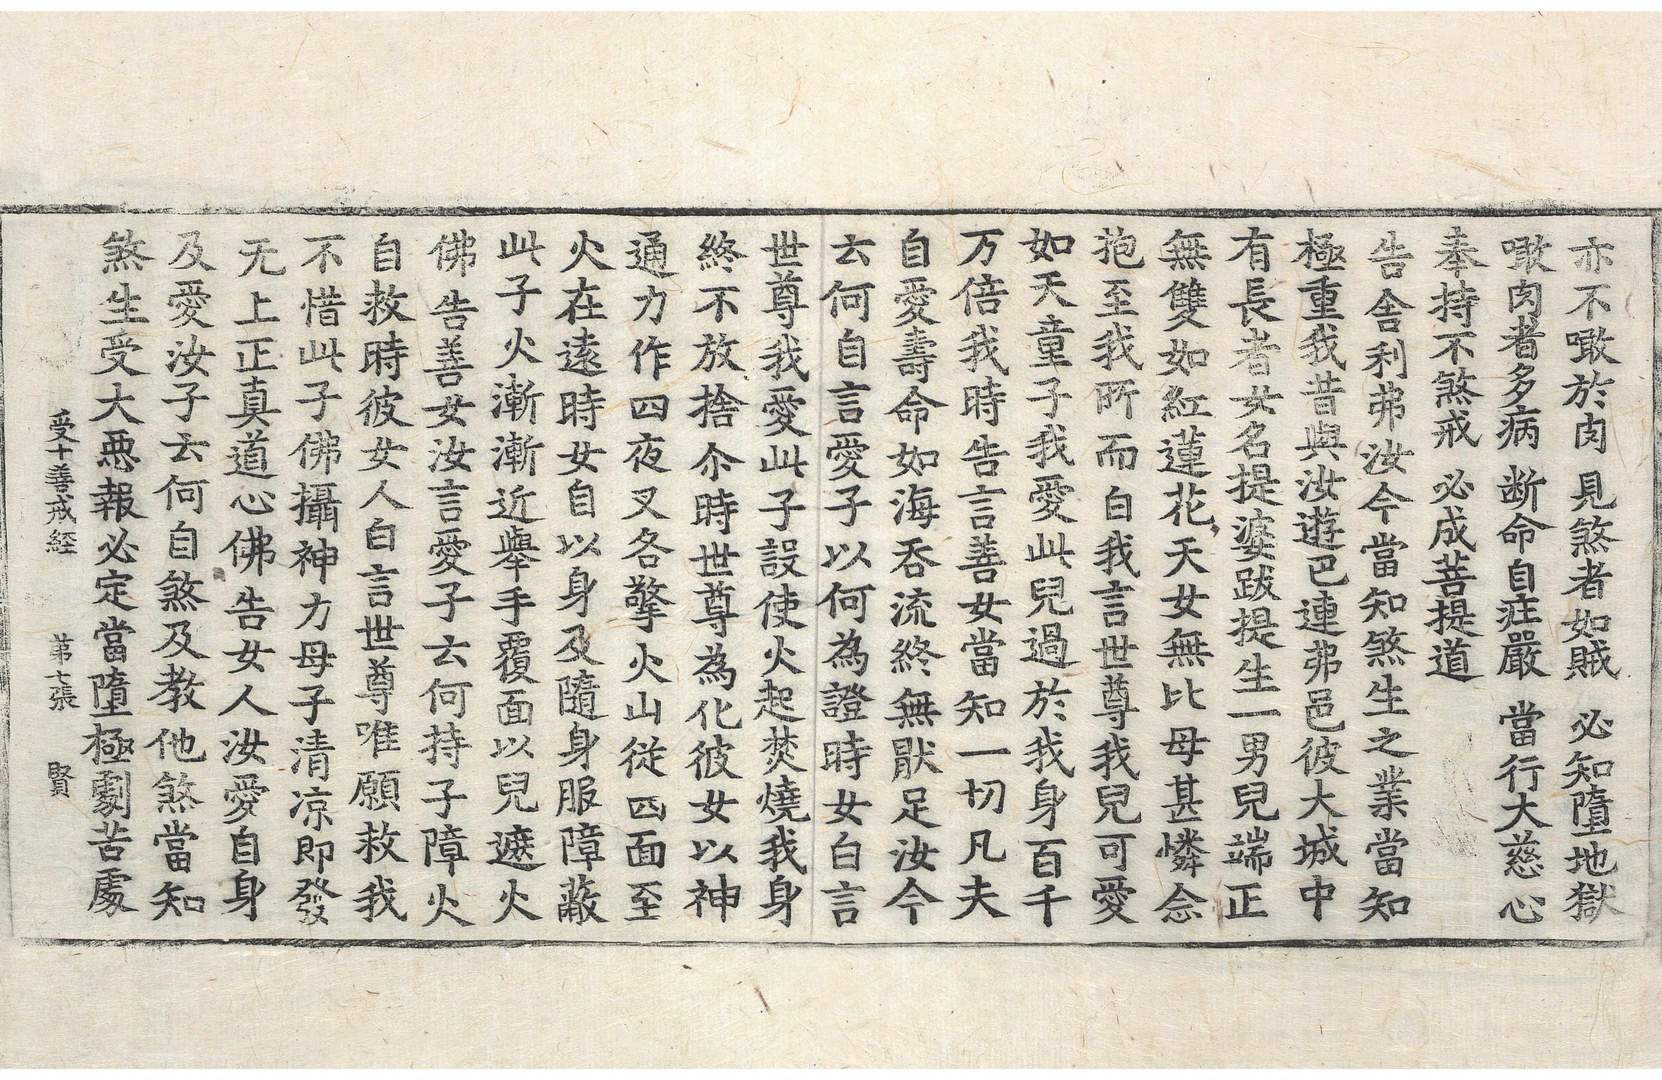 亦不噉於肉 見煞者如賊 必知墮地獄
噉肉者多病 断命自莊嚴 當行大慈心
奉持不煞戒 必成菩提道
告舍利弗汝今當知煞生之業當知
極重我昔與汝遊巴連弗邑彼大城中
有長者女名提婆跋提生一男兒端正
無雙如紅蓮花天女無比母甚憐念
抱至我所而白我言世尊我兒可愛
如天童子我愛此兒過於我身百千
万倍我時告言善女當知一切凡夫
自愛壽命如海吞流終無猒足汝今
云何自言愛子以何為證時女白言
世尊我愛此子設使火起焚燒我身
終不放捨尒時世尊為化彼女以神
通力作四夜叉各擎火山從四面至
火在遠時女自以身及隨身服障蔽
此子火漸漸近舉手覆面以兒遮火
佛告善女汝言愛子云何持子障火
自救時彼女人白言世尊唯願救我
不惜此子佛攝神力母子清凉即發
无上正真道心佛告女人汝愛自身
及愛汝子云何自煞及教他煞當知
煞生受大悪報必定當墮極劇苦處
受十善戒経 第七張 賢